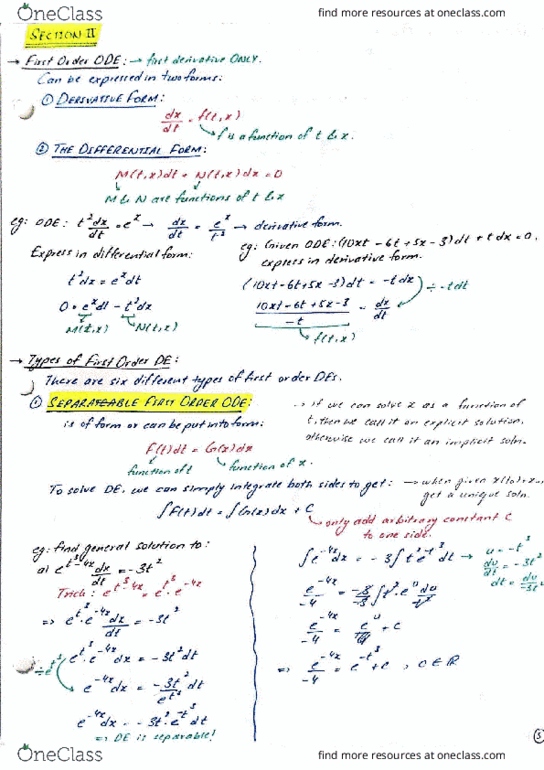 OneClass
find more resources at oneclass.com
SECTION II
→ First Order ODE: → first derivative ONLY.
Can be expressed in two forms:
① DERIVATIVE FORM:
dx/dt = f(t,x)
f is a function of t & x.
② THE DIFFERENTIAL FORM:
M(t,x)dt + N(t,x)dx = 0
M & N are functions of t & x
eg: ODE: t² dx/dt = e^x → dx/dt = e^x/t² → derivative form.
Express in differential form:
t²dx = e^x dt
0 = e^x dt - t²dx
M(t,x) N(t,x)
eg: Given ODE: (10xt - 6t + 5x - 3)dt + t dx = 0,
express in derivative form.
(10xt - 6t + 5x - 3)dt = -t dx
÷ -t dt
(10xt - 6t + 5x - 3)/-t = dx/dt
f(t,x)
→ Types of First Order DE:
There are six different types of first order DEs.
① SEPARATEABLE FIRST ORDER ODE:
is of form or can be put into form:
F(t)dt = G(x)dx
function of t function of x.
→ if we can solve x as a function of
t, then we call it an explicit solution,
otherwise we call it an implicit soln.
To solve DE, we can simply integrate both sides to get:
→ when given x(t₀) = x₀
get a unique soln.
∫F(t)dt = ∫G(x)dx + C
only add arbitrary constant C
to one side.
eg: find general solution to:
a) e^(t³-4x) dx/dt = -3t²
Trick: e^(t³-4x) = e^(t³) · e^(-4x)
⇒ e^(t³) · e^(-4x) dx/dt = -3t²
e^(t³) · e^(-4x) dx = -3t²dt
÷ e^(t³)
e^(-4x) dx = -3t²/e^(t³) dt
e^(-4x) dx = -3t² · e^(-t³) dt
⇒ DE is separable!
∫e^(-4x) dx = -3∫t² e^(-t³) dt → u = -t³
du/dt = -3t²
dt = du/-3t²
e^(-4x)/-4 = -3/-3 ∫t² · e^u du/t²
e^(-4x)/-4 = e^u + C
⇒ e^(-4x)/-4 = e^(-t³) + C, C ∈ ℝ
5
OneClass
find more resources at oneclass.com